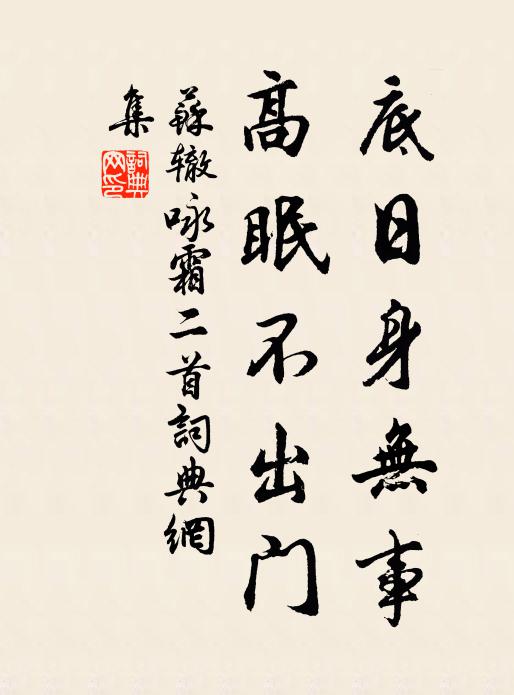 底日身無事
高眠不出門
蘇辙咏霜二首詞典網
集
詞典
网印